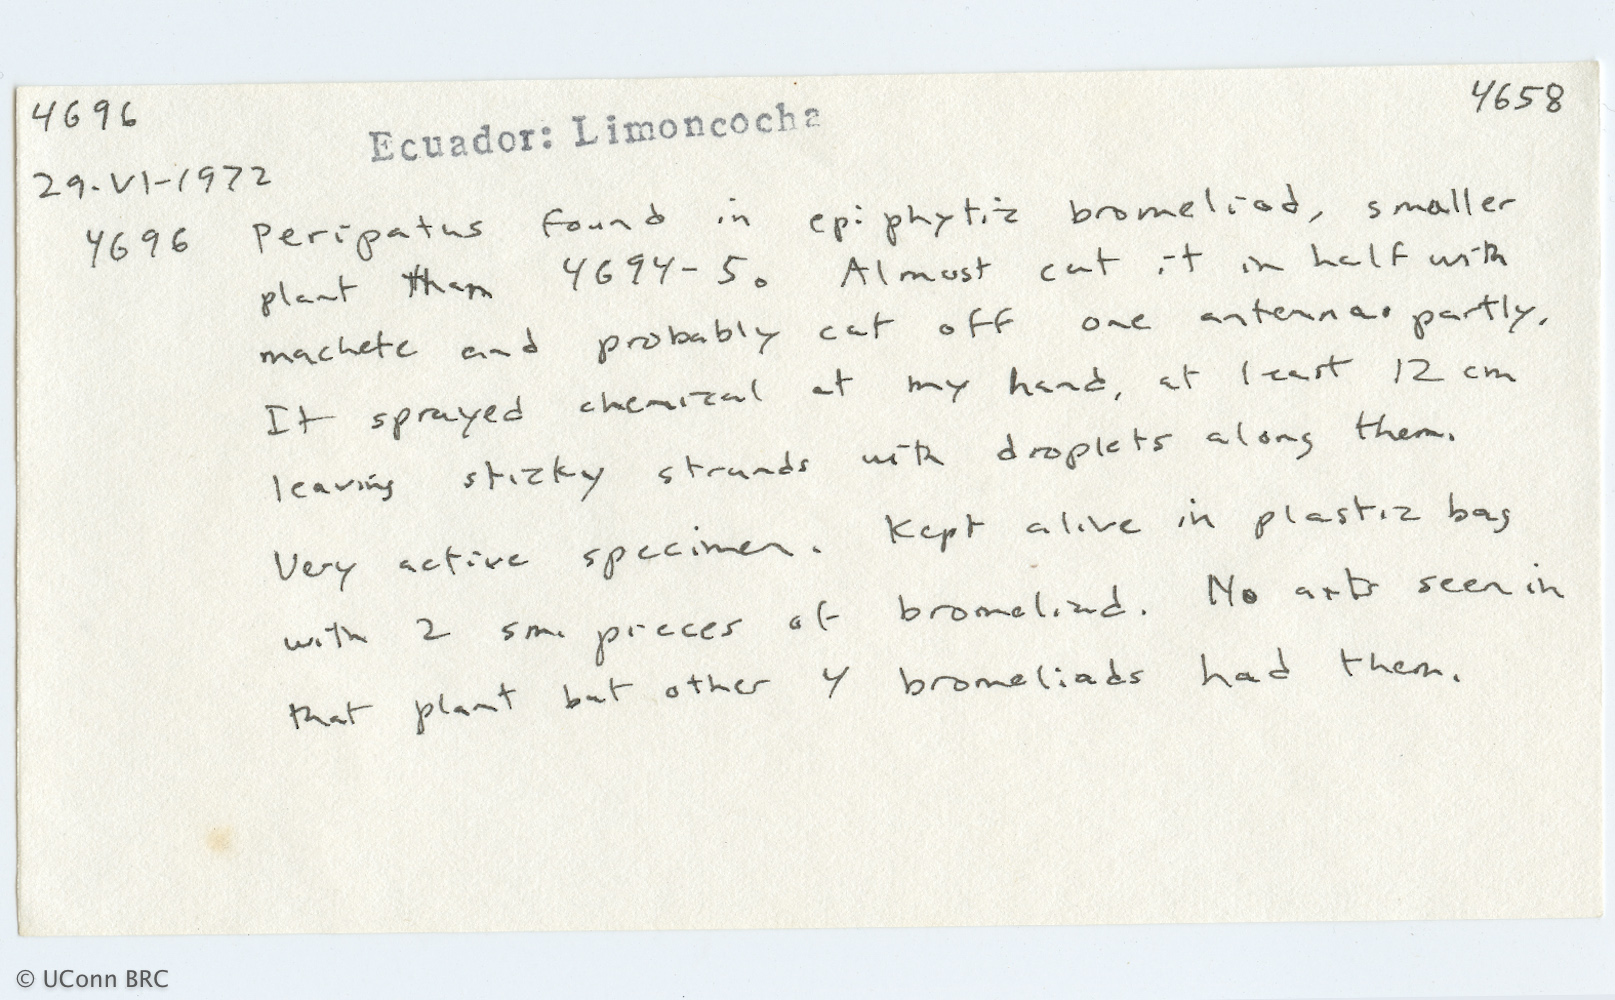 4696
4658
Ecuador: Limoncocha
29-VI-1972
4696 Peripatus found in epiphytic bromeliad, smaller
plant than 4694-5. Almost cut it in half with
machete and probably cut off one antenna partly.
It sprayed chemical at my hand, at least 12 cm
leaving sticky strands with droplets along them.
Very active specimen. Kept alive in plastic bag
with 2 sm. pieces of bromeliad. No ants seen in
that plant but other 4 bromeliads had them.
© UConn BRC